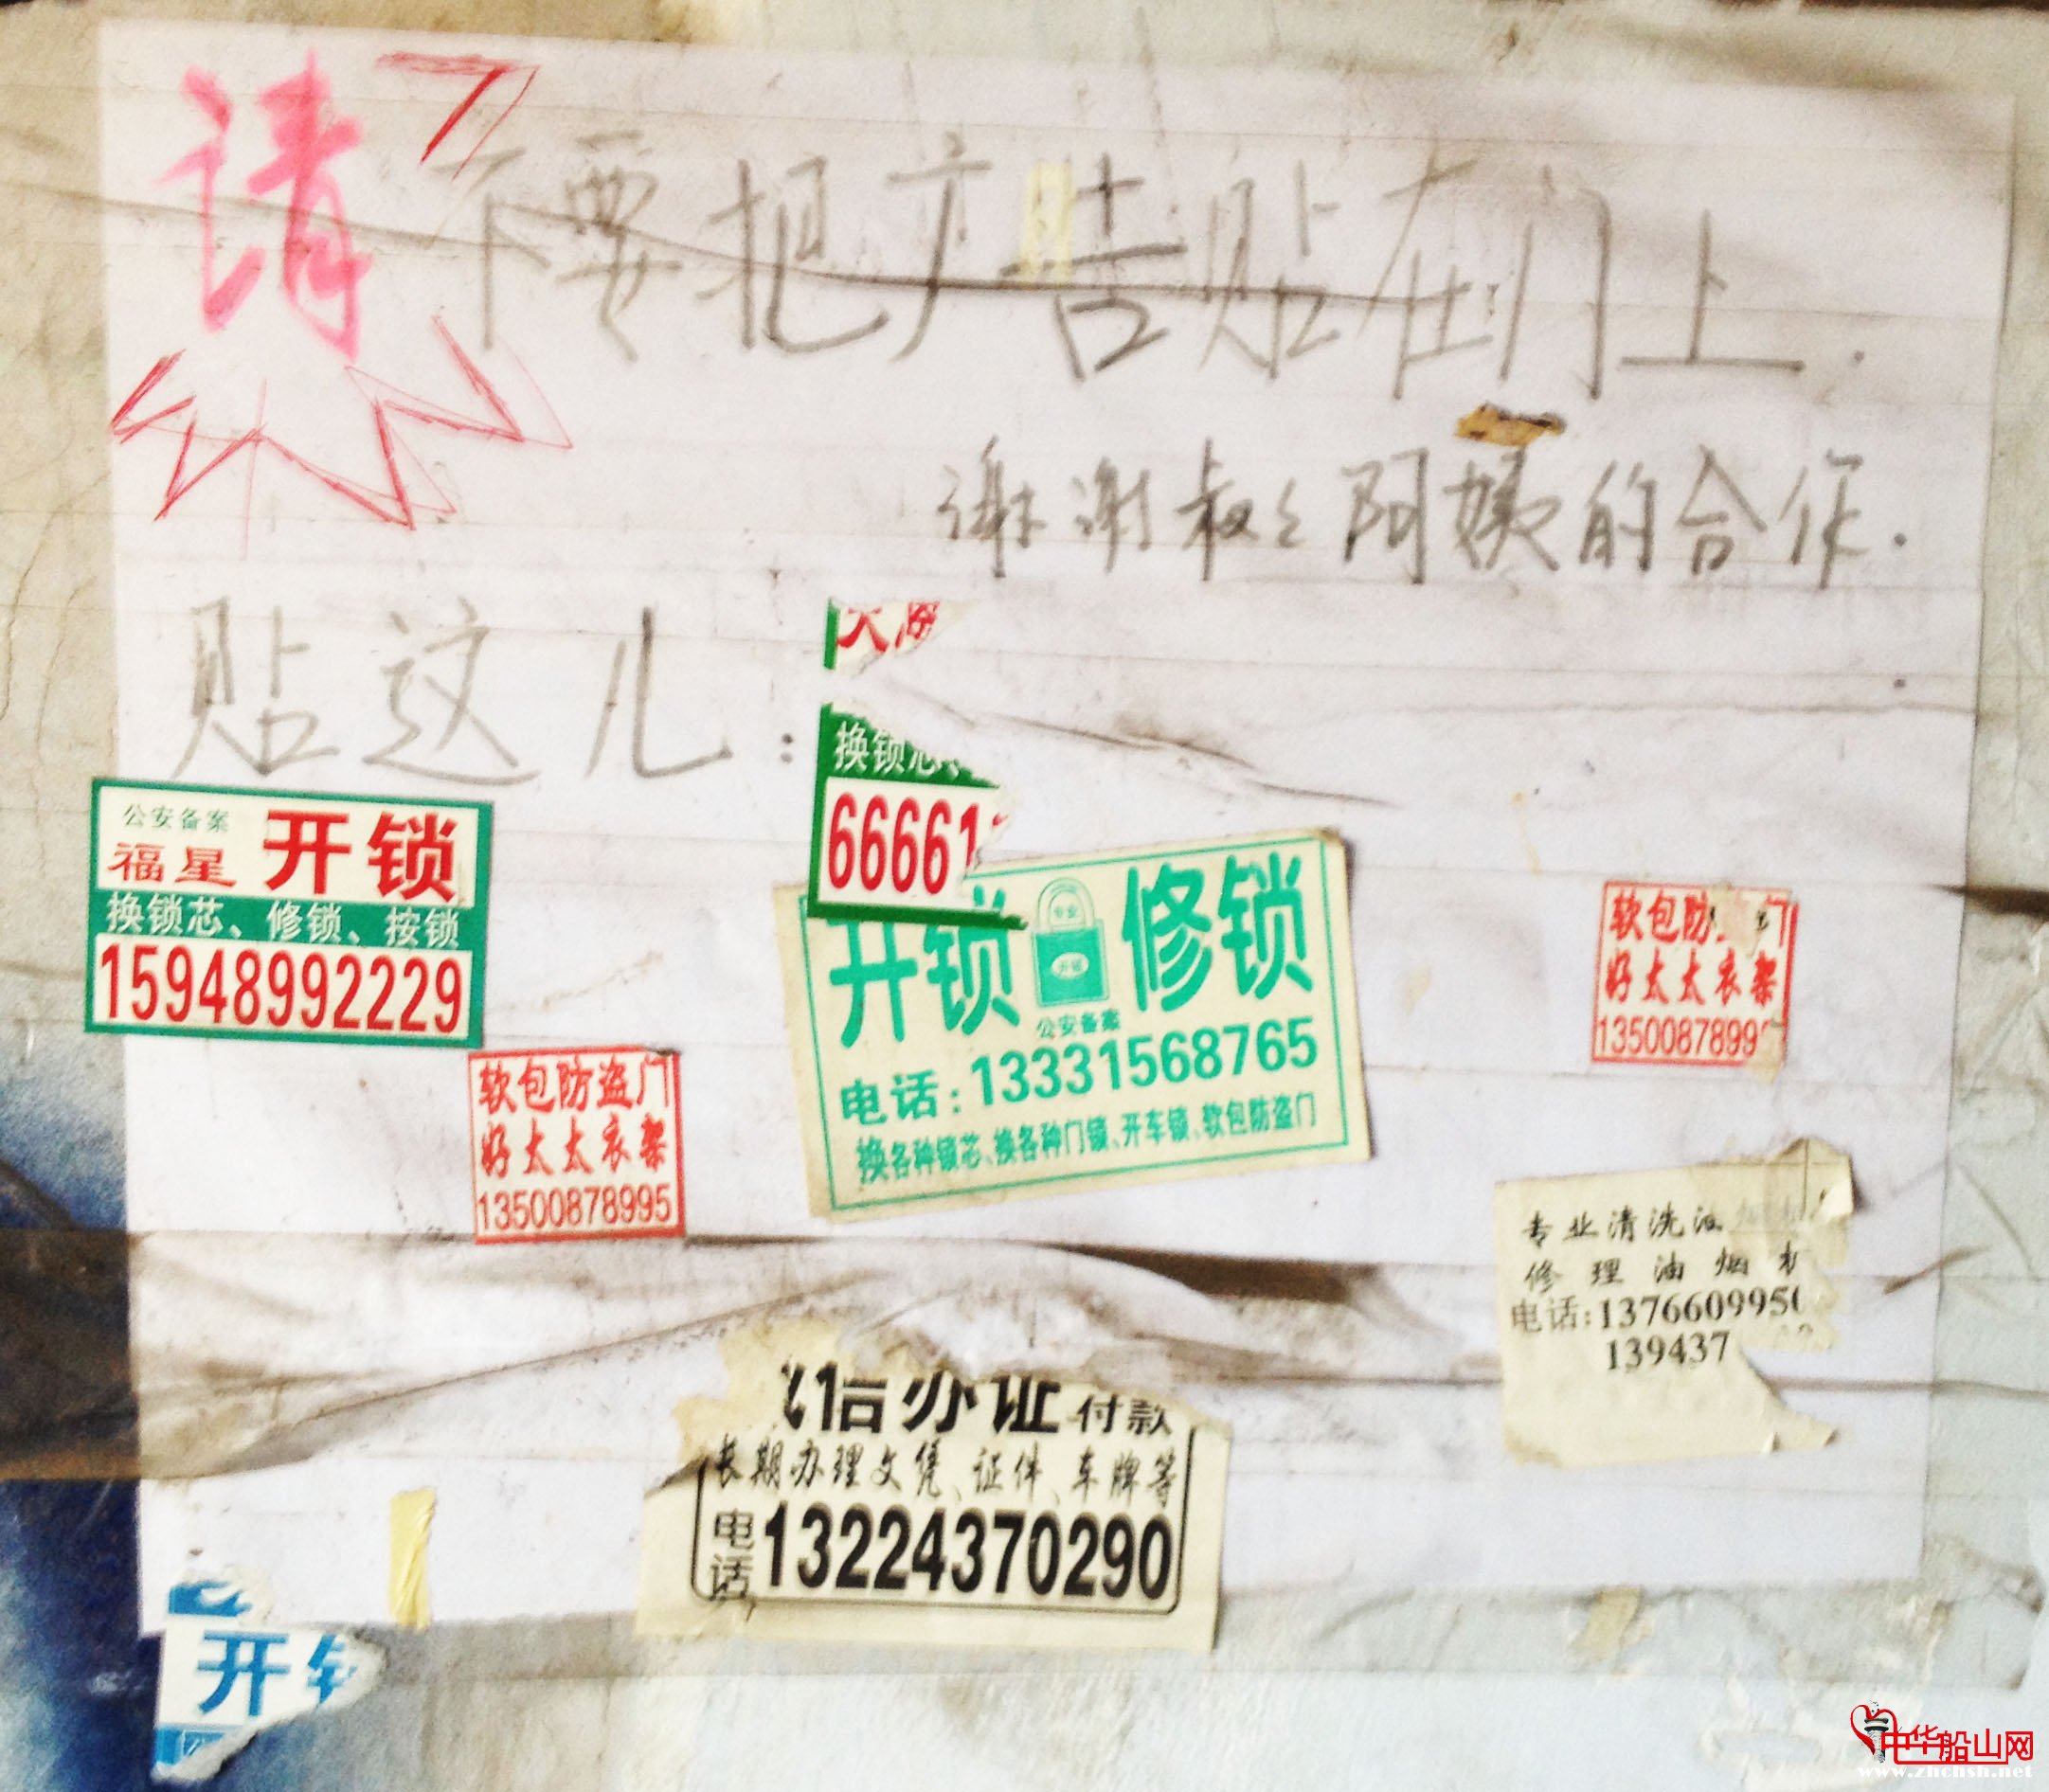 请不要把广告贴在门上.
谢谢叔叔阿姨的合作.
贴这儿:
换锁芯、
66661
公安备案
福星 开锁
换锁芯、修锁、按锁
15948992229
开锁 修锁
专业
公安备案
电话:13331568765
换各种锁芯、换各种门锁、开车锁、软包防盗门
软包防 门
好太太衣架
1350087899
软包防盗门
好太太衣架
13500878995
专业清洗油烟机
修理油烟机
电话:1376609950
139437
信办证 付款
长期办理文凭、证件、车牌等
电话13224370290
开锁
中华船山网
www.zhchsh.net